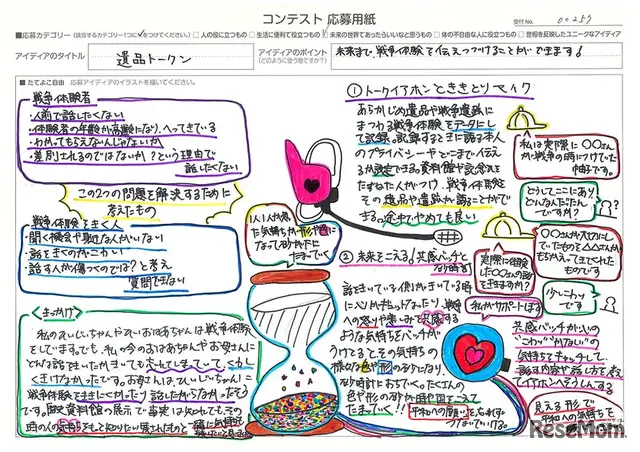 コンテスト 応募用紙
受付No. 00257
■応募カテゴリー(該当するカテゴリー1つに✓をつけてください。) □人の役に立つもの □生活に便利で役立つもの □未来の世界であったらいいなと思うもの □体の不自由な人に役立つもの □世相を反映したユニークなアイディア
アイディアのタイトル
遺品トークン
アイディアのポイント
(どのように使う物ですか?)
未来まで、戦争体験を伝えつづけることができます!
■たてよこ自由 応募アイディアのイラストを描いてください。
戦争体験者
・人前で話したくない
・体験者の年齢が高齢になり、へってきている
・わかってもらえないんじゃないか
・差別されるのではないか?という理由で
話したくない
この2つの問題を解決するために
考えたもの
戦争体験をきく人
・聞く機会や身近な人がいない
・話をきくのがこわい
・話す人が傷つくのでは?と考え
質問できない
<きっかけ>
私のひいじいちゃんやひいおばあちゃんは戦争体験
をしています。でも、私の今のおばあちゃんやお母さんに
どんな話をきいたかきいても忘れてしまっていてくわし
くきけなかったです。お母さんは、ひいじいちゃんに
戦争体験をききにくかったり、話したがらなかったそう
です。
1人1人が感じ
た気持ちが形や色に
なって
たまっていく
①トークイアホンとききとりマイク
あらかじめ遺品や戦争遺跡に
まつわる戦争体験をデータにし
て記録。記録するときに話す本人
のプライバシーやどこまで伝える
か設定できる。資料館や記念公
たずねた人がつけ、戦争体験を
その遺品や遺跡から語ることがで
きる。途中でやめても良い
私は実際に
〇〇さん
が戦争の時につけていた
帽子です。
どうしてここにあり、
どんな人だったん
ですか?
〇〇さんが大切にし
ていたものを△△さんが
もらってきてくれた
ものです
実際に体験
した〇〇さんの話
をききますか?
少しこわいで
す
私がサポートします
②未来をこえる!共感バッチと
砂時計
話をきいている
ような気持ちをバッチが
うけとるとその気持ちの
様々な色や形の砂になり、
砂時計におちていく。たくさんの
色や形の砂が時や国をこえて
たまっていく!!
平和への願いを忘れずに
つなげていける。
共感バッチがいの
"こわい""かなしい"の
気持ちをキャッチして、
話す内容や話し方を考え
てイヤホンへそうしんする
見える形で
平和への気持ちを
ReseMom